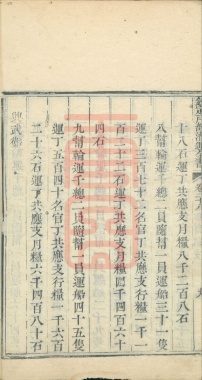 十八石運丁共應支月糧八千二百八石
八幫輪運千總二員隨幫一員運船三十一隻
運丁三百七十二名官丁共應支行糧一千一
百二十二石運丁共應支月糧四千四百六十
四石
九幫輪運千總二員隨幫一員運船四十五隻
運丁五百四十名官丁共應支行糧一千六百
二十六石運丁共應支月糧六千四百八十石
興武衛